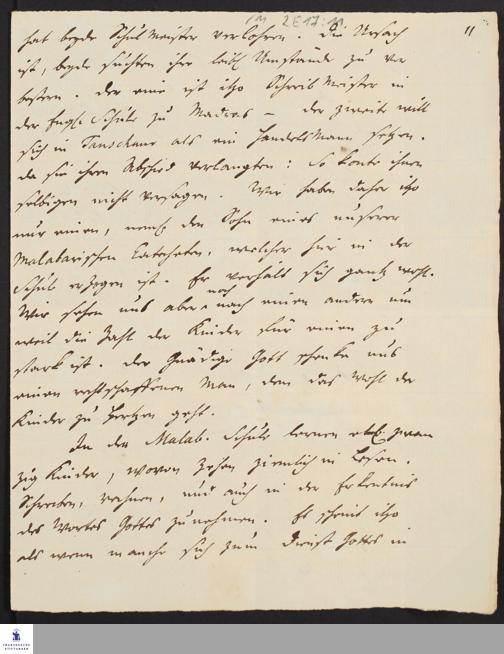 1M 2E17:11
11
hat beyde Schul Meister verlohren. Die Ursach
ist, beyde suchten ihre leibl. Umstände zu ver
bessern. Der eine ist itzo Schreib Meister in
der Engl. Schule zu Madras – der zweite will
sich in Tanschaur als ein Handels Mann setzen.
da sie ihren Abschied verlangten: So konte ihnen
selbigen nicht versagen. Wir haben daher itzo
nur einen, neml. den Sohn eines unserer
Malabarischen Catecheten, welcher hier in der
Schule erzogen ist. Er verhält sich gantz wohl.
Wir sehen uns aber noch nach einen andern um
weil die Zahl der Kinder für einen zu
stark ist. Der Gnädige Gott schenke uns
einen rechtschaffenen Man, dem das Wohl der
Kinder zu Hertzen geht.
In der Malab. Schule lernen etl. zwan
zig Kinder, wovon zehen ziemlich in Lesen,
Schreiben, rechnen, und auch in der Erkentnis
des Wortes Gottes zunehmen. Es scheint itzo
als wenn manche sich zum Dienst Gottes in
FRANCKESCHE
STIFTUNGEN